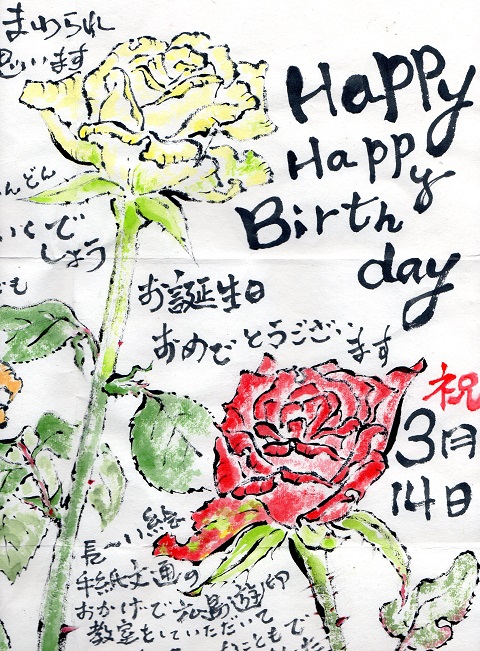 まわられ
思います
Happy
Happy
Birth
day
んどん
いくで
しょう
も
お誕生日
おめでとうござい
ます
祝
3月
14日
長〜い絵
手紙交通の
おかげで松島遊印
教室をしていただいて
こともで